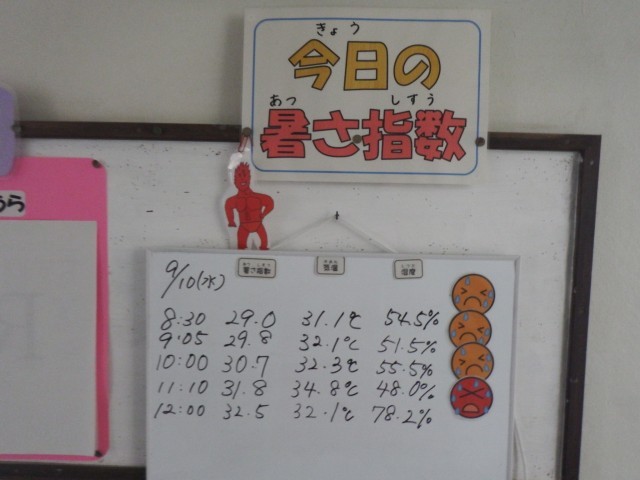 きょう
今日の
あつ しすう
暑さ指数
うら
9/10(水)
暑さ指数 気温 湿度
8:30 29.0 31.1℃ 54.5%
9:05 29.8 32.1℃ 51.5%
10:00 30.7 32.3℃ 55.5%
11:10 31.8 34.8℃ 48.0%
12:00 32.5 32.1℃ 78.2%